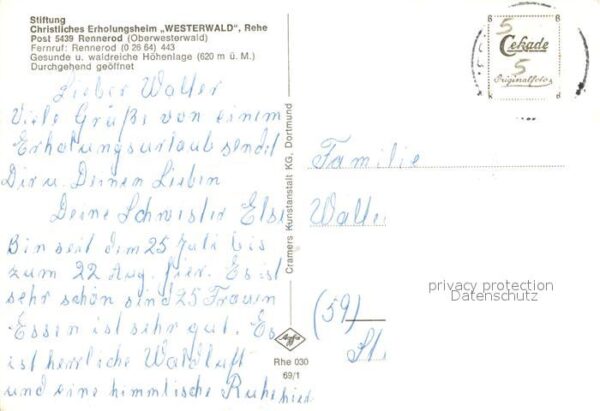 Stiftung
Christliches Erholungsheim „WESTERWALD", Rehe
Post 5439 Rennerod (Oberwesterwald)
Fernruf: Rennerod (0 26 64) 443
Gesunde u. waldreiche Höhenlage (620 m ü. M.)
Durchgehend geöffnet
Lieber Walter
Viele Grüße von einem
Erholungsurlaub sendet
Dir u. Deinen Lieben
Deine Schwester Else
Bin seit dem 25 Juli bis
zum 22 Aug. hier. Es ist
sehr schön sind 25 Frauen
Essen ist sehr gut. Es
ist herrliche Waldluft
und eine himmlische Ruhe hier
Cramers Kunstanstalt KG, Dortmund
Agfa
Rhe 030
69/1
6 6
Cekade
5
5
Originalfoto
6 6
Familie
Walte
(59)
St.
privacy protection
Datenschutz